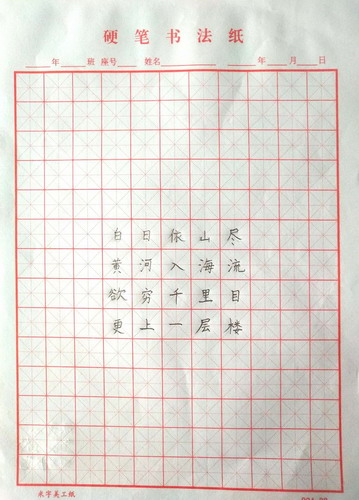 硬笔书法纸
年 班 座号 姓名 年 月 日
白日依山尽
黄河入海流
欲穷千里目
更上一层楼
米字美工纸